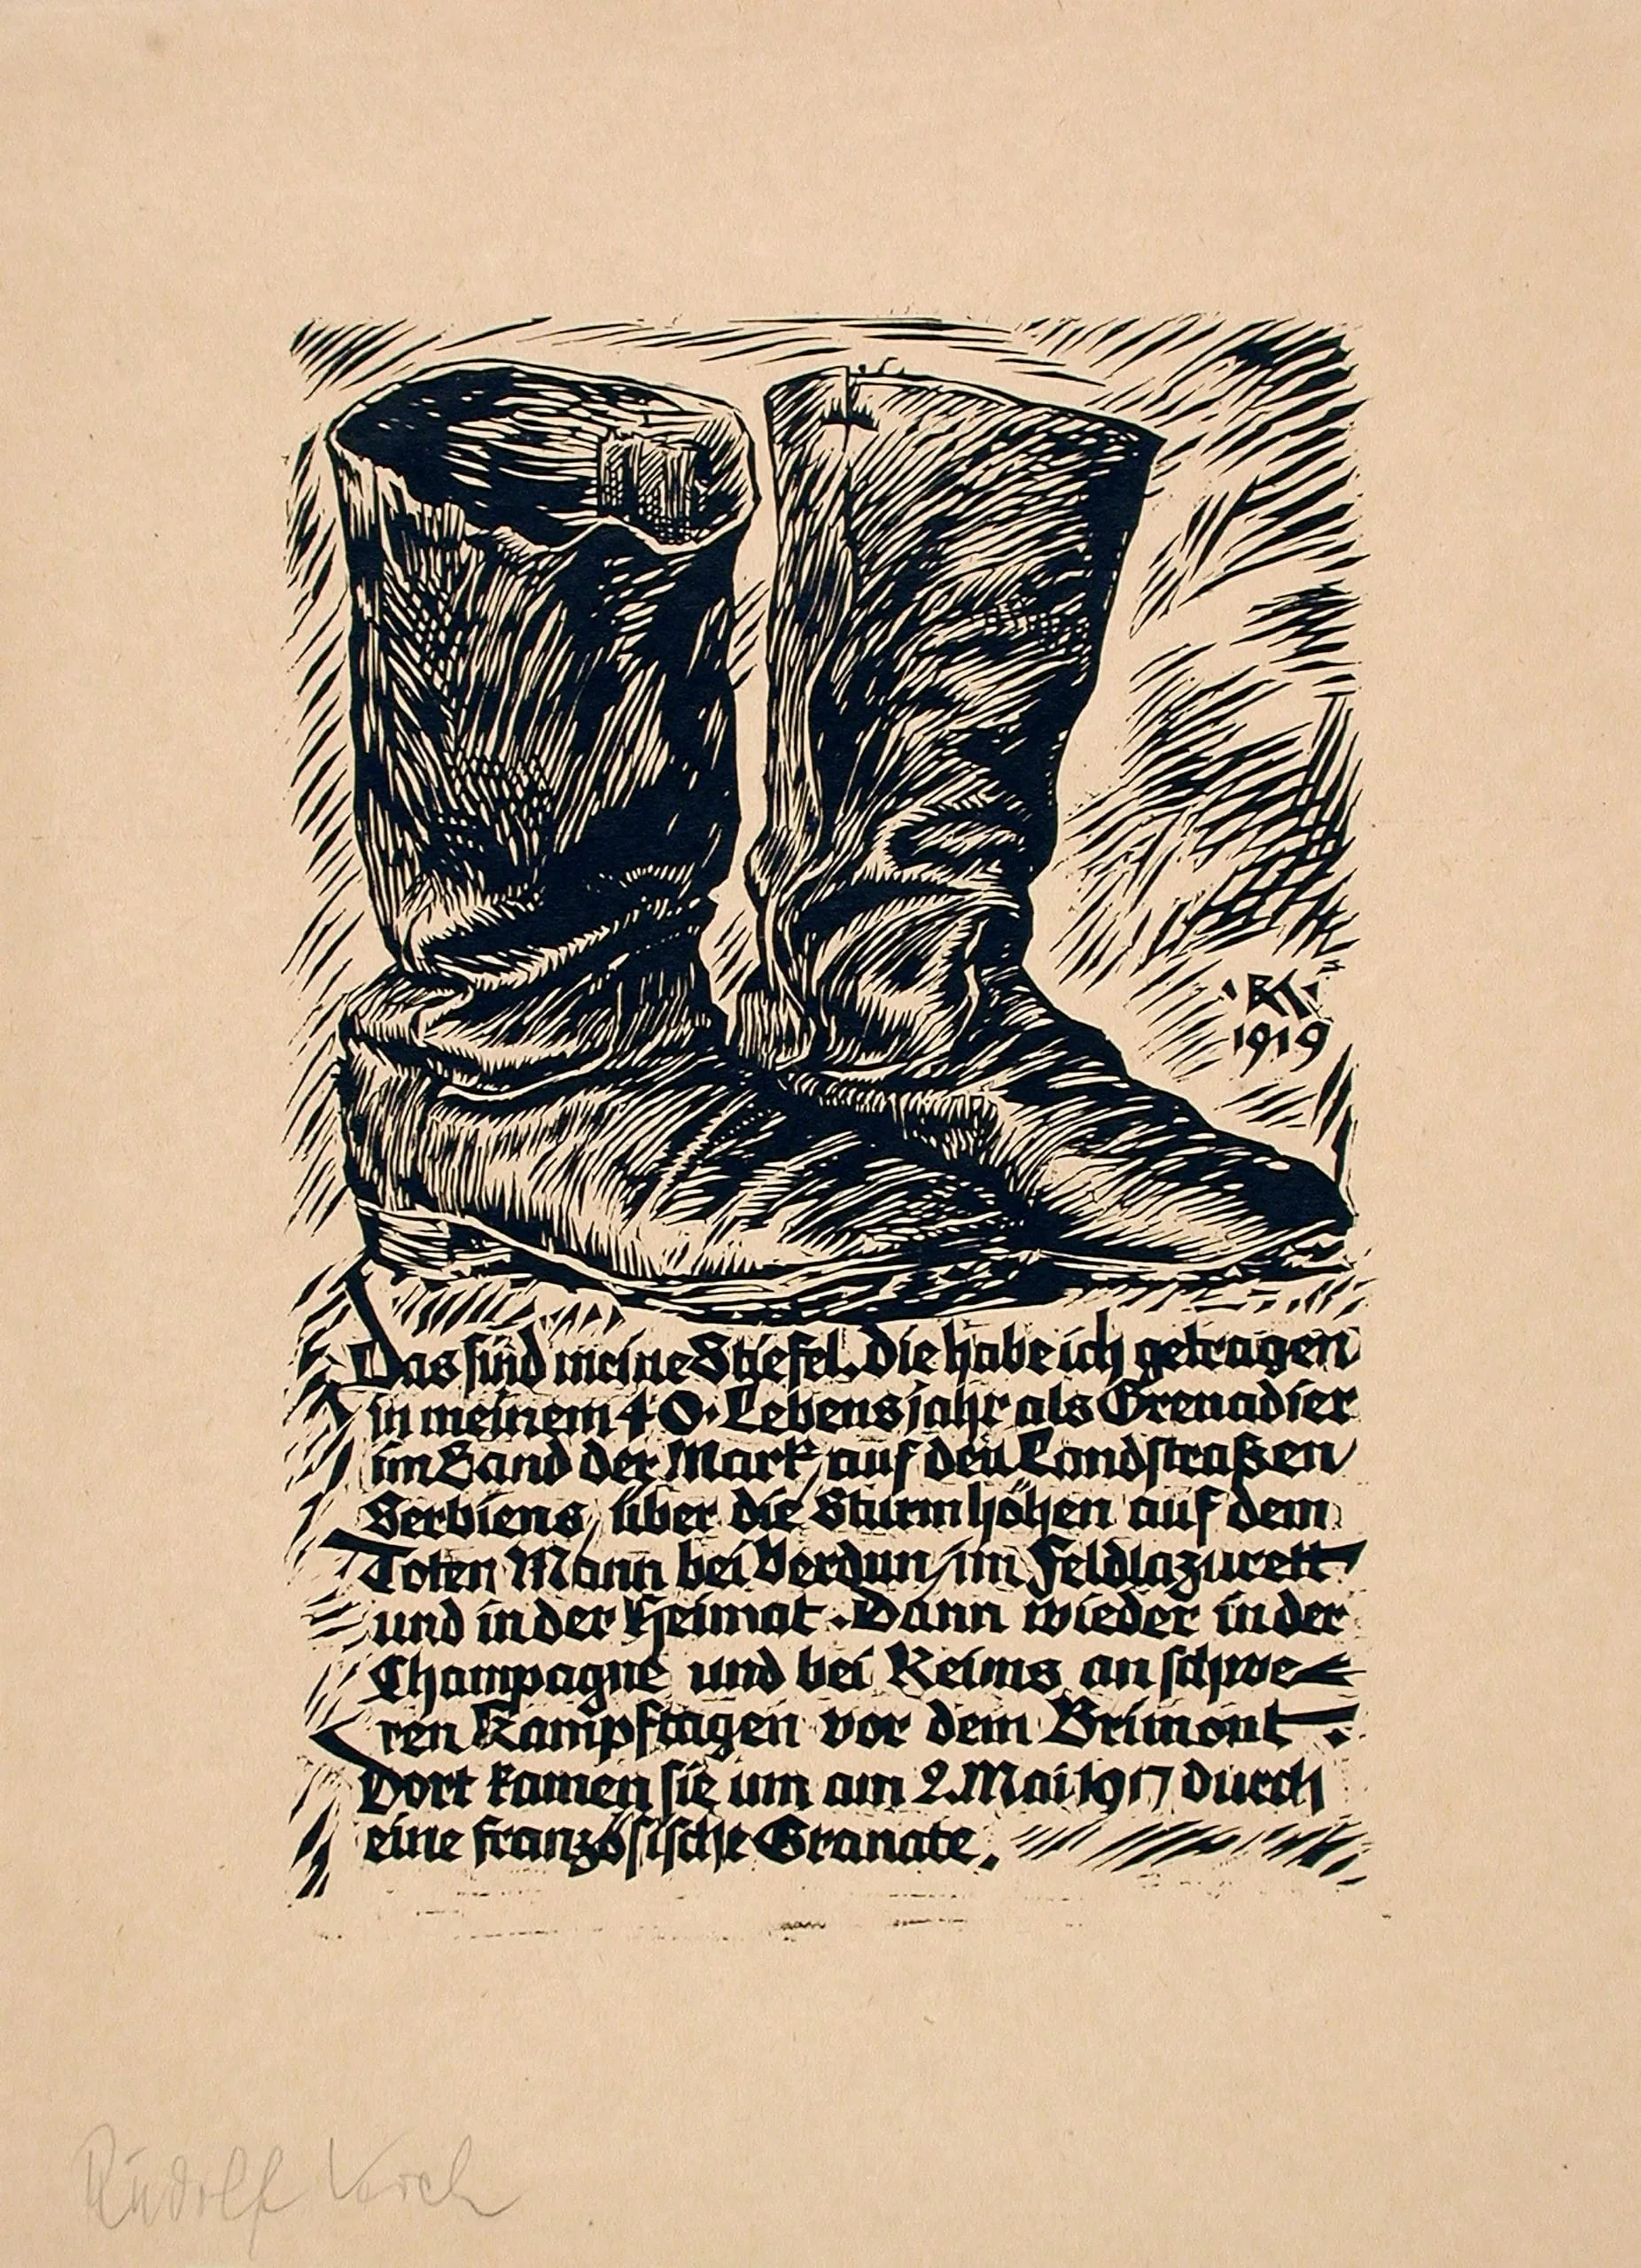 RK
1919
Das sind meine Stiefel. Die habe ich getragen
in meinem 40. Lebensjahr als Grenadier
im Sand der Mark, auf den Landstraßen
Serbiens, über die Sturmhöhen auf dem
Toten Mann bei Verdun, im Feldlazarett
und in der Heimat. Dann wieder in der
Champagne und bei Reims an schwe-
ren Kampftagen vor dem Brimont.
Dort kamen sie um am 2. Mai 1917 durch
eine französische Granate.
Rudolf Koch